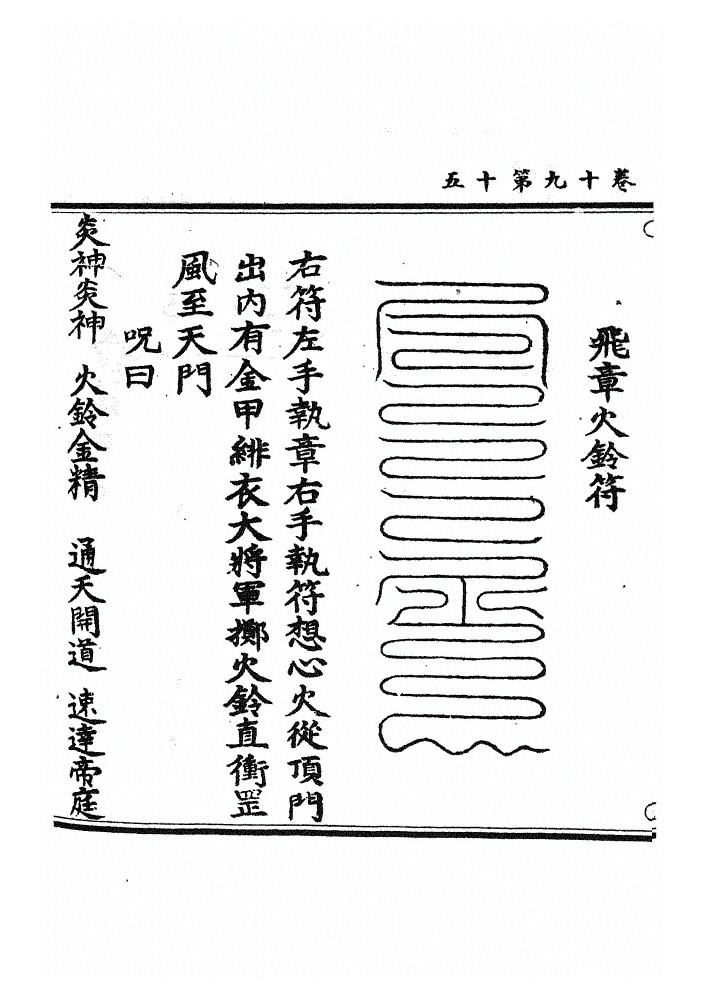 卷十九第十五
飛章火鈴符
右符左手執章右手執符想心火從頂門
出內有金甲緋衣大將軍擲火鈴直衝罡
風至天門
呪曰
炎神炎神 火鈴金精 通天開道 速達帝庭